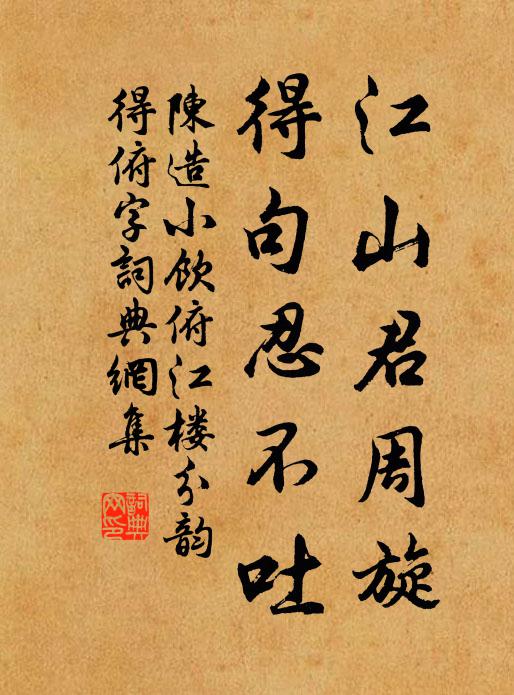 江山君周旋
得句忍不吐
陳造小飲俯江楼分韵
得俯字詞典網集
詞典網印